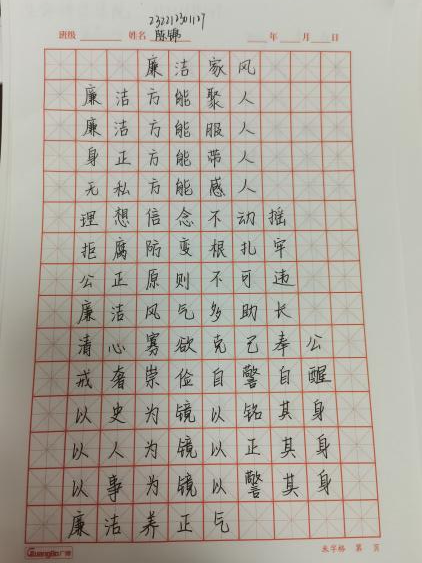 232212301127
班级 姓名 陈锦 年 月 日
廉洁家风
廉洁方能聚人
廉洁方能服人
身正方能带人
无私方能感人
理想信念不动摇
拒腐防变根扎牢
公正原则不可违
廉洁风气多助长
清心寡欲克己奉公
戒奢崇俭自警自醒
以史为镜以铭其身
以人为镜以正其身
以事为镜以警其身
廉洁养正气
Guangbo广博 米字格 第 页